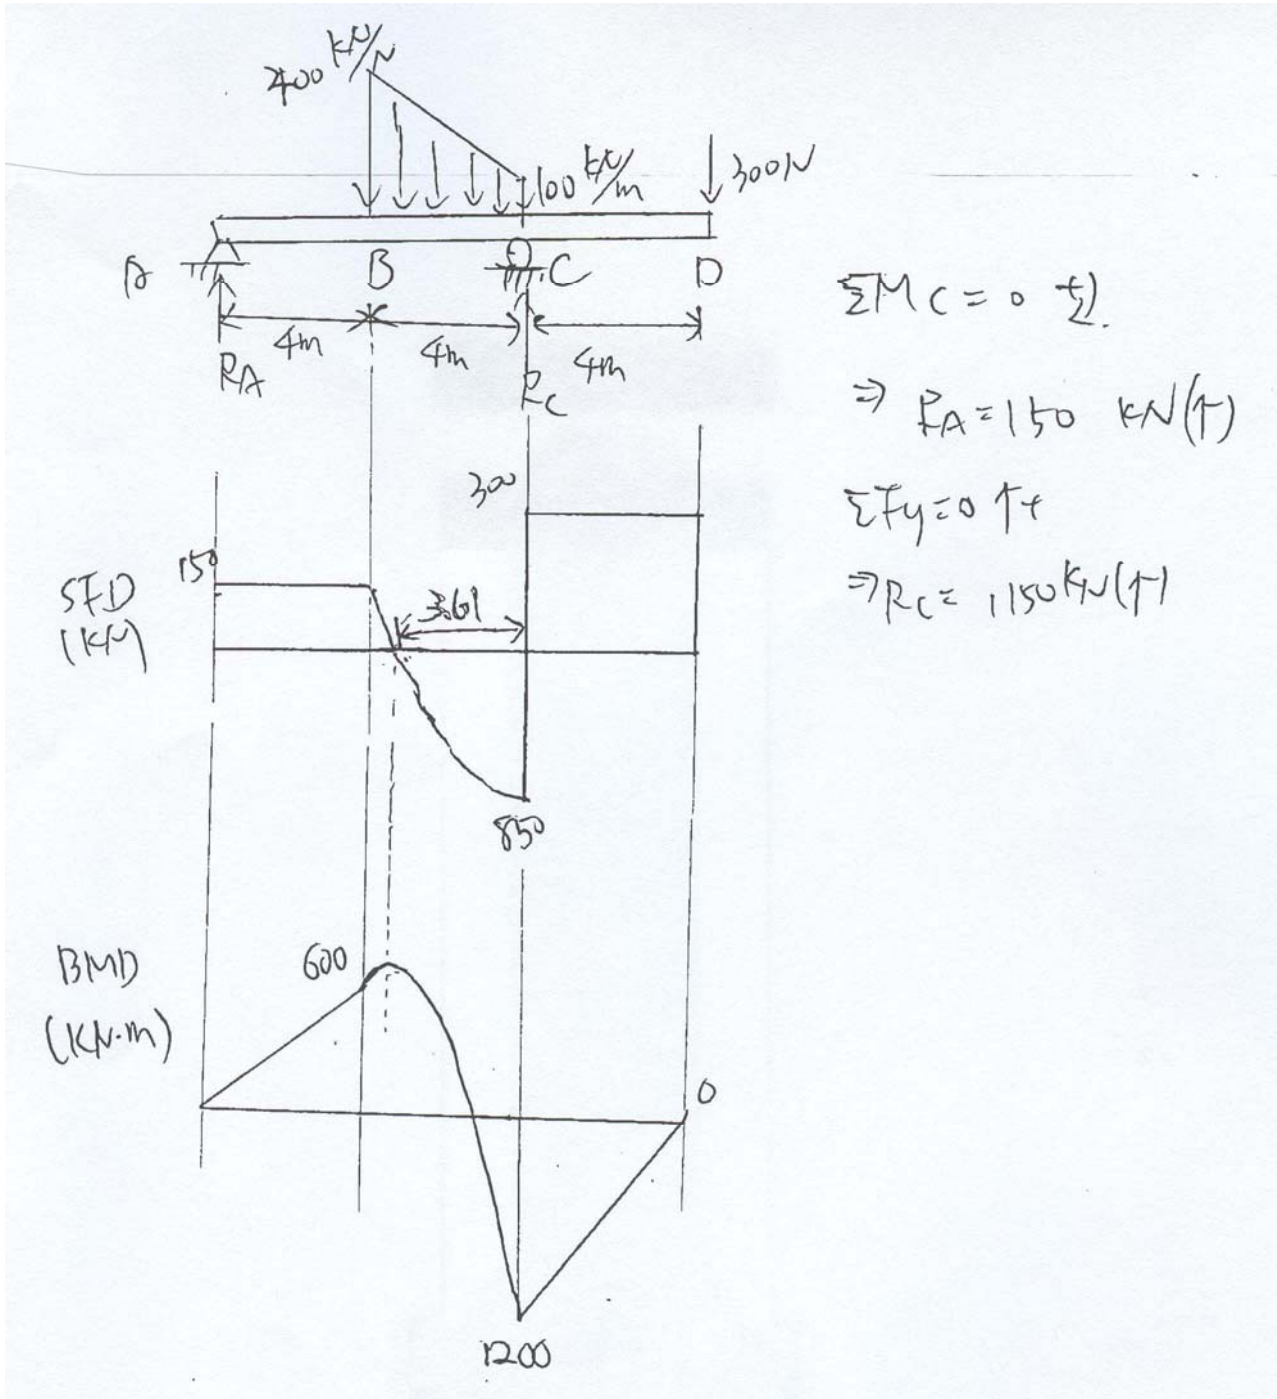 400 KN/N
100 KN/m
300N
A B C D
4m 4m 4m
RA RC
ΣMC = 0 +
⇒ RA = 150 KN(↑)
ΣFy = 0 ↑+
⇒ RC = 1150 KN(↑)
SFD
(KN)
150
300
3.61
850
BMD
(KN·m)
600
0
1200